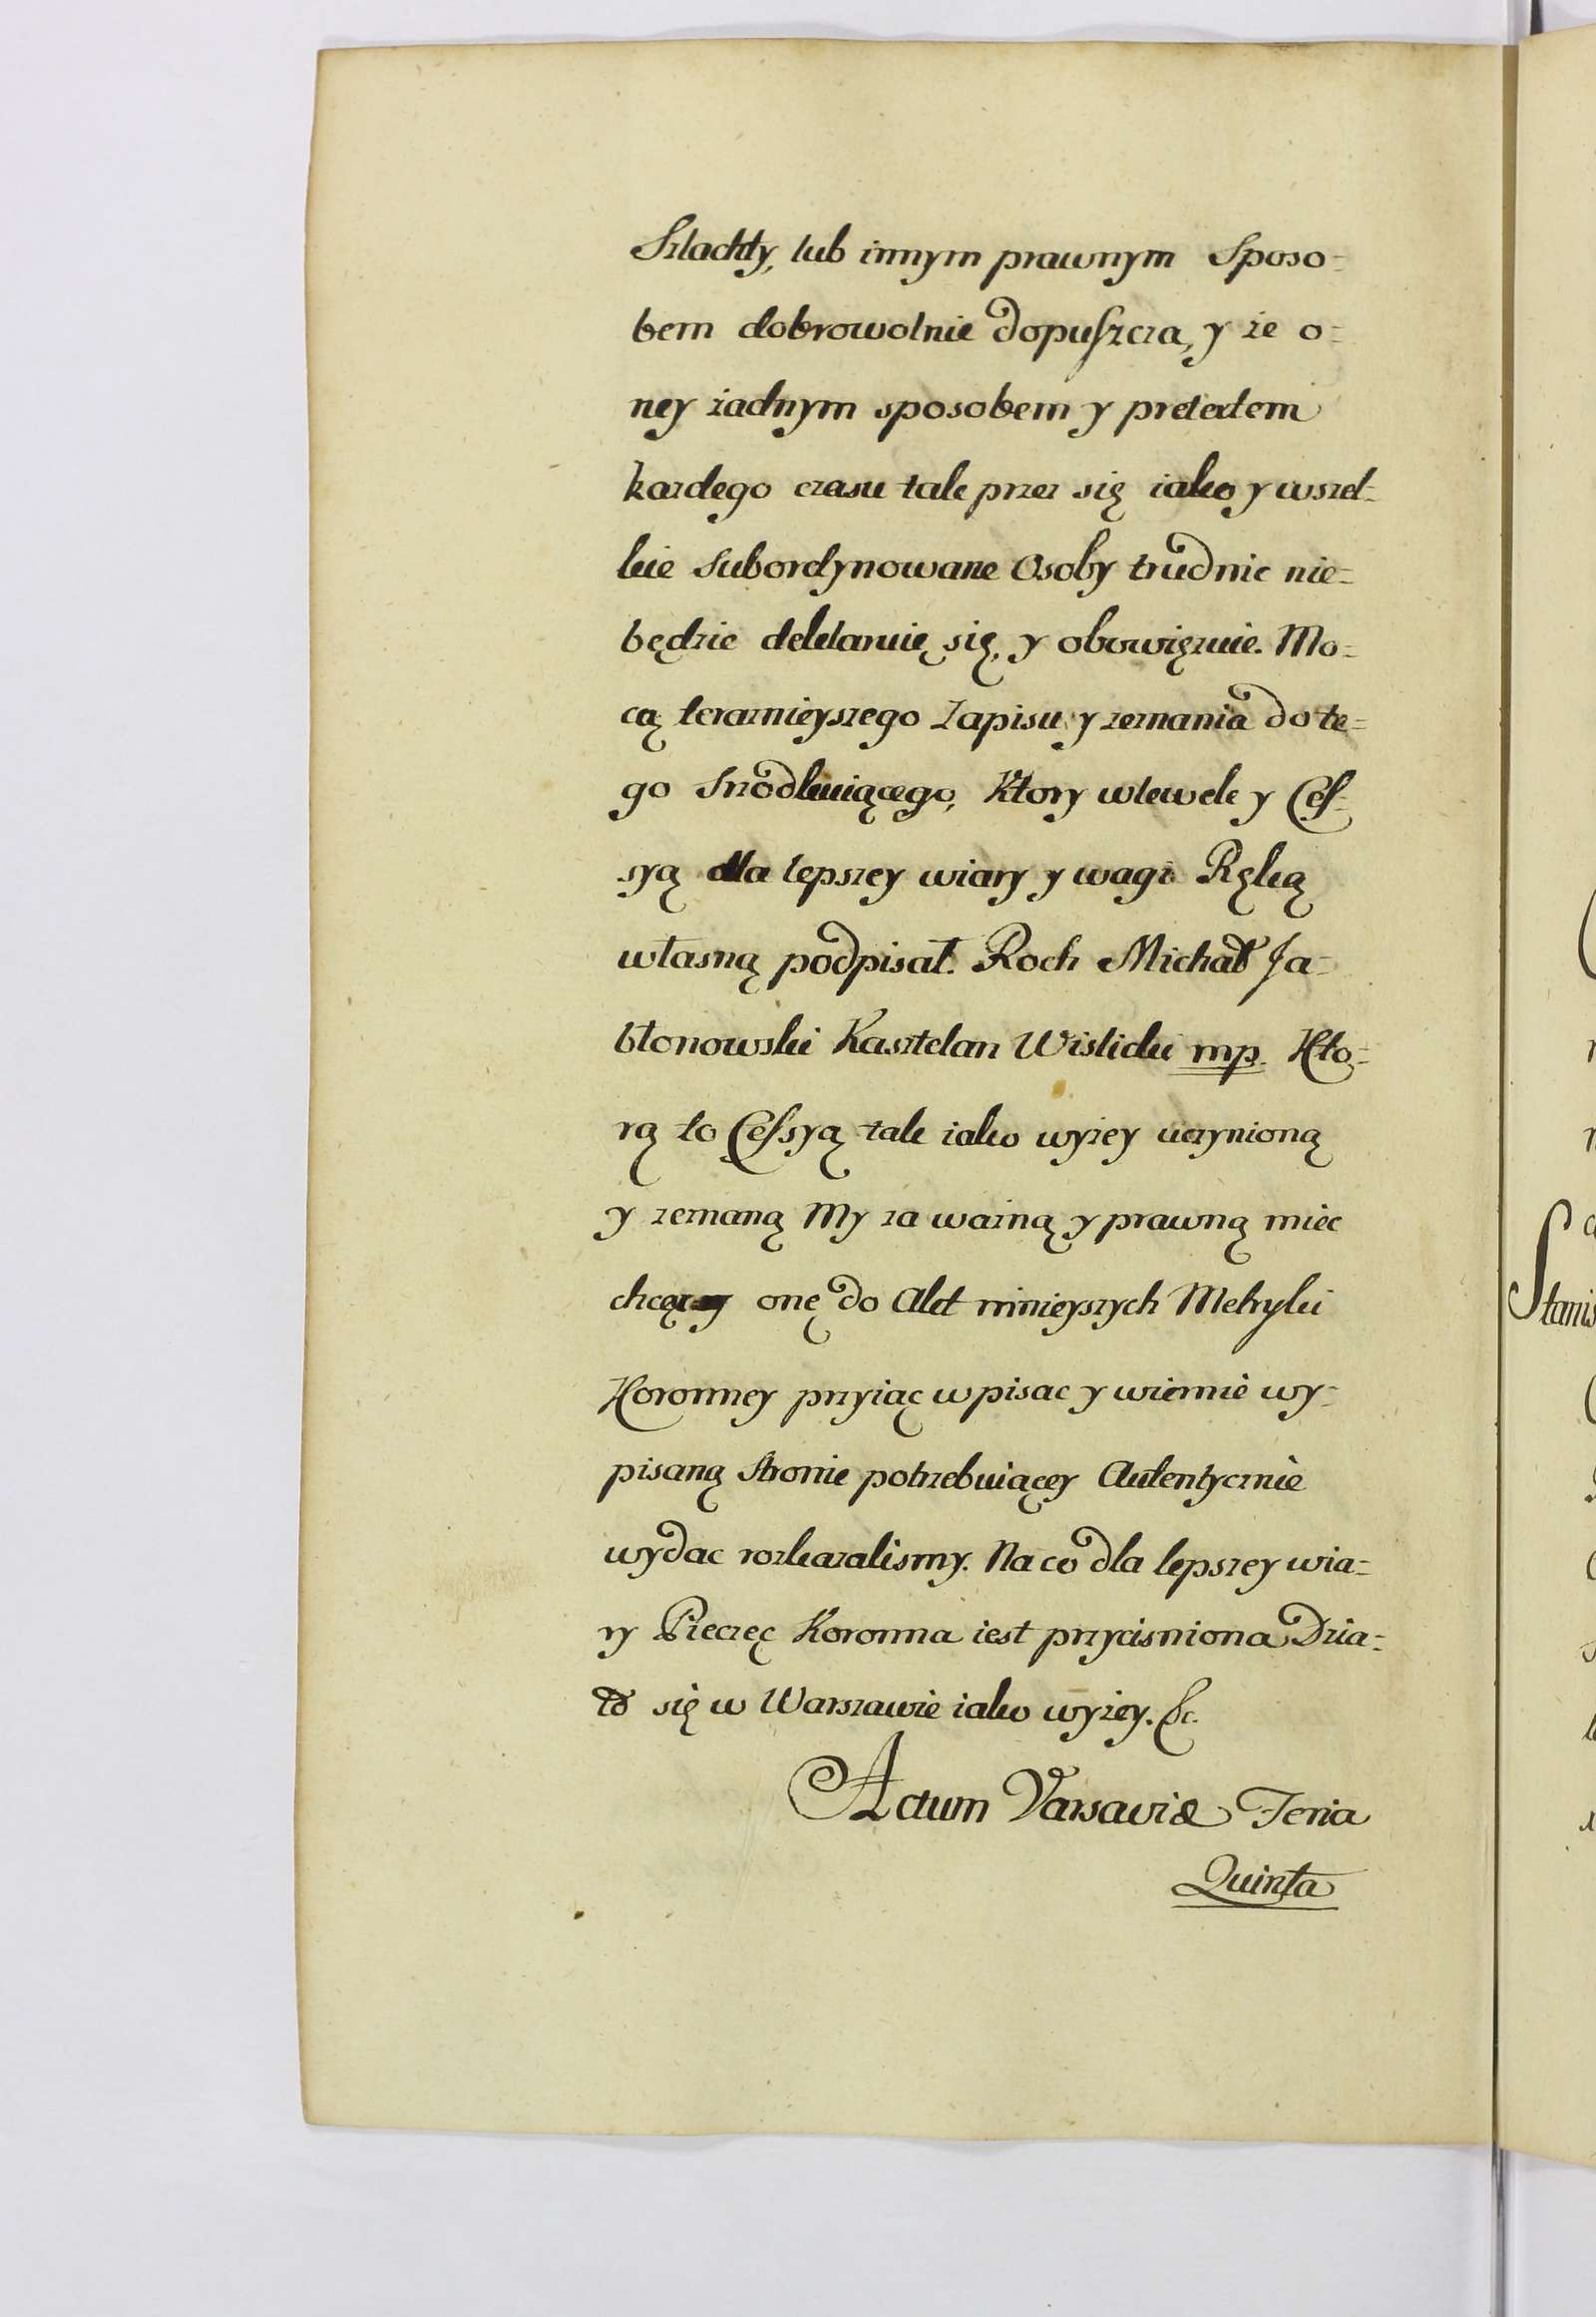 Szlachty, lub innym prawnym Sposo=
bem dobrowolnie dopuszcza, y że o=
ney żadnym sposobem y pretextem
kazdego czasu tak przez się iako y wszel=
kie Subordynowane Osoby trudnic nie=
będzie deklaruię się, y obowięzuie. Mo=
cą teraznieyszego Zapisu y zeznania do te=
go Srzodkuiącego, Ktory wlewek y Ces=
syą dla lepszey wiary y wagi Ręką
własną podpisał. Roch Michał Ja=
błonowski Kasztelan Wislicki mp. Kto=
rą to Cessyą tak iako wyzey uczynioną
y zeznaną My za ważną y prawną miec
chcąc onę do Akt mnieyszych Metryki
Koronney przyiąc wpisac y wiernie wy=
pisaną Stronie potrzebuiącey Autentycznie
wydac rozkazalismy. Na co dla lepszey wia=
ry Pieczęc Koronna iest przycisniona Dzia=
ło się w Warszawie iako wyżey. &c.
Actum Varsaviæ Feria
Quinta
Stanis